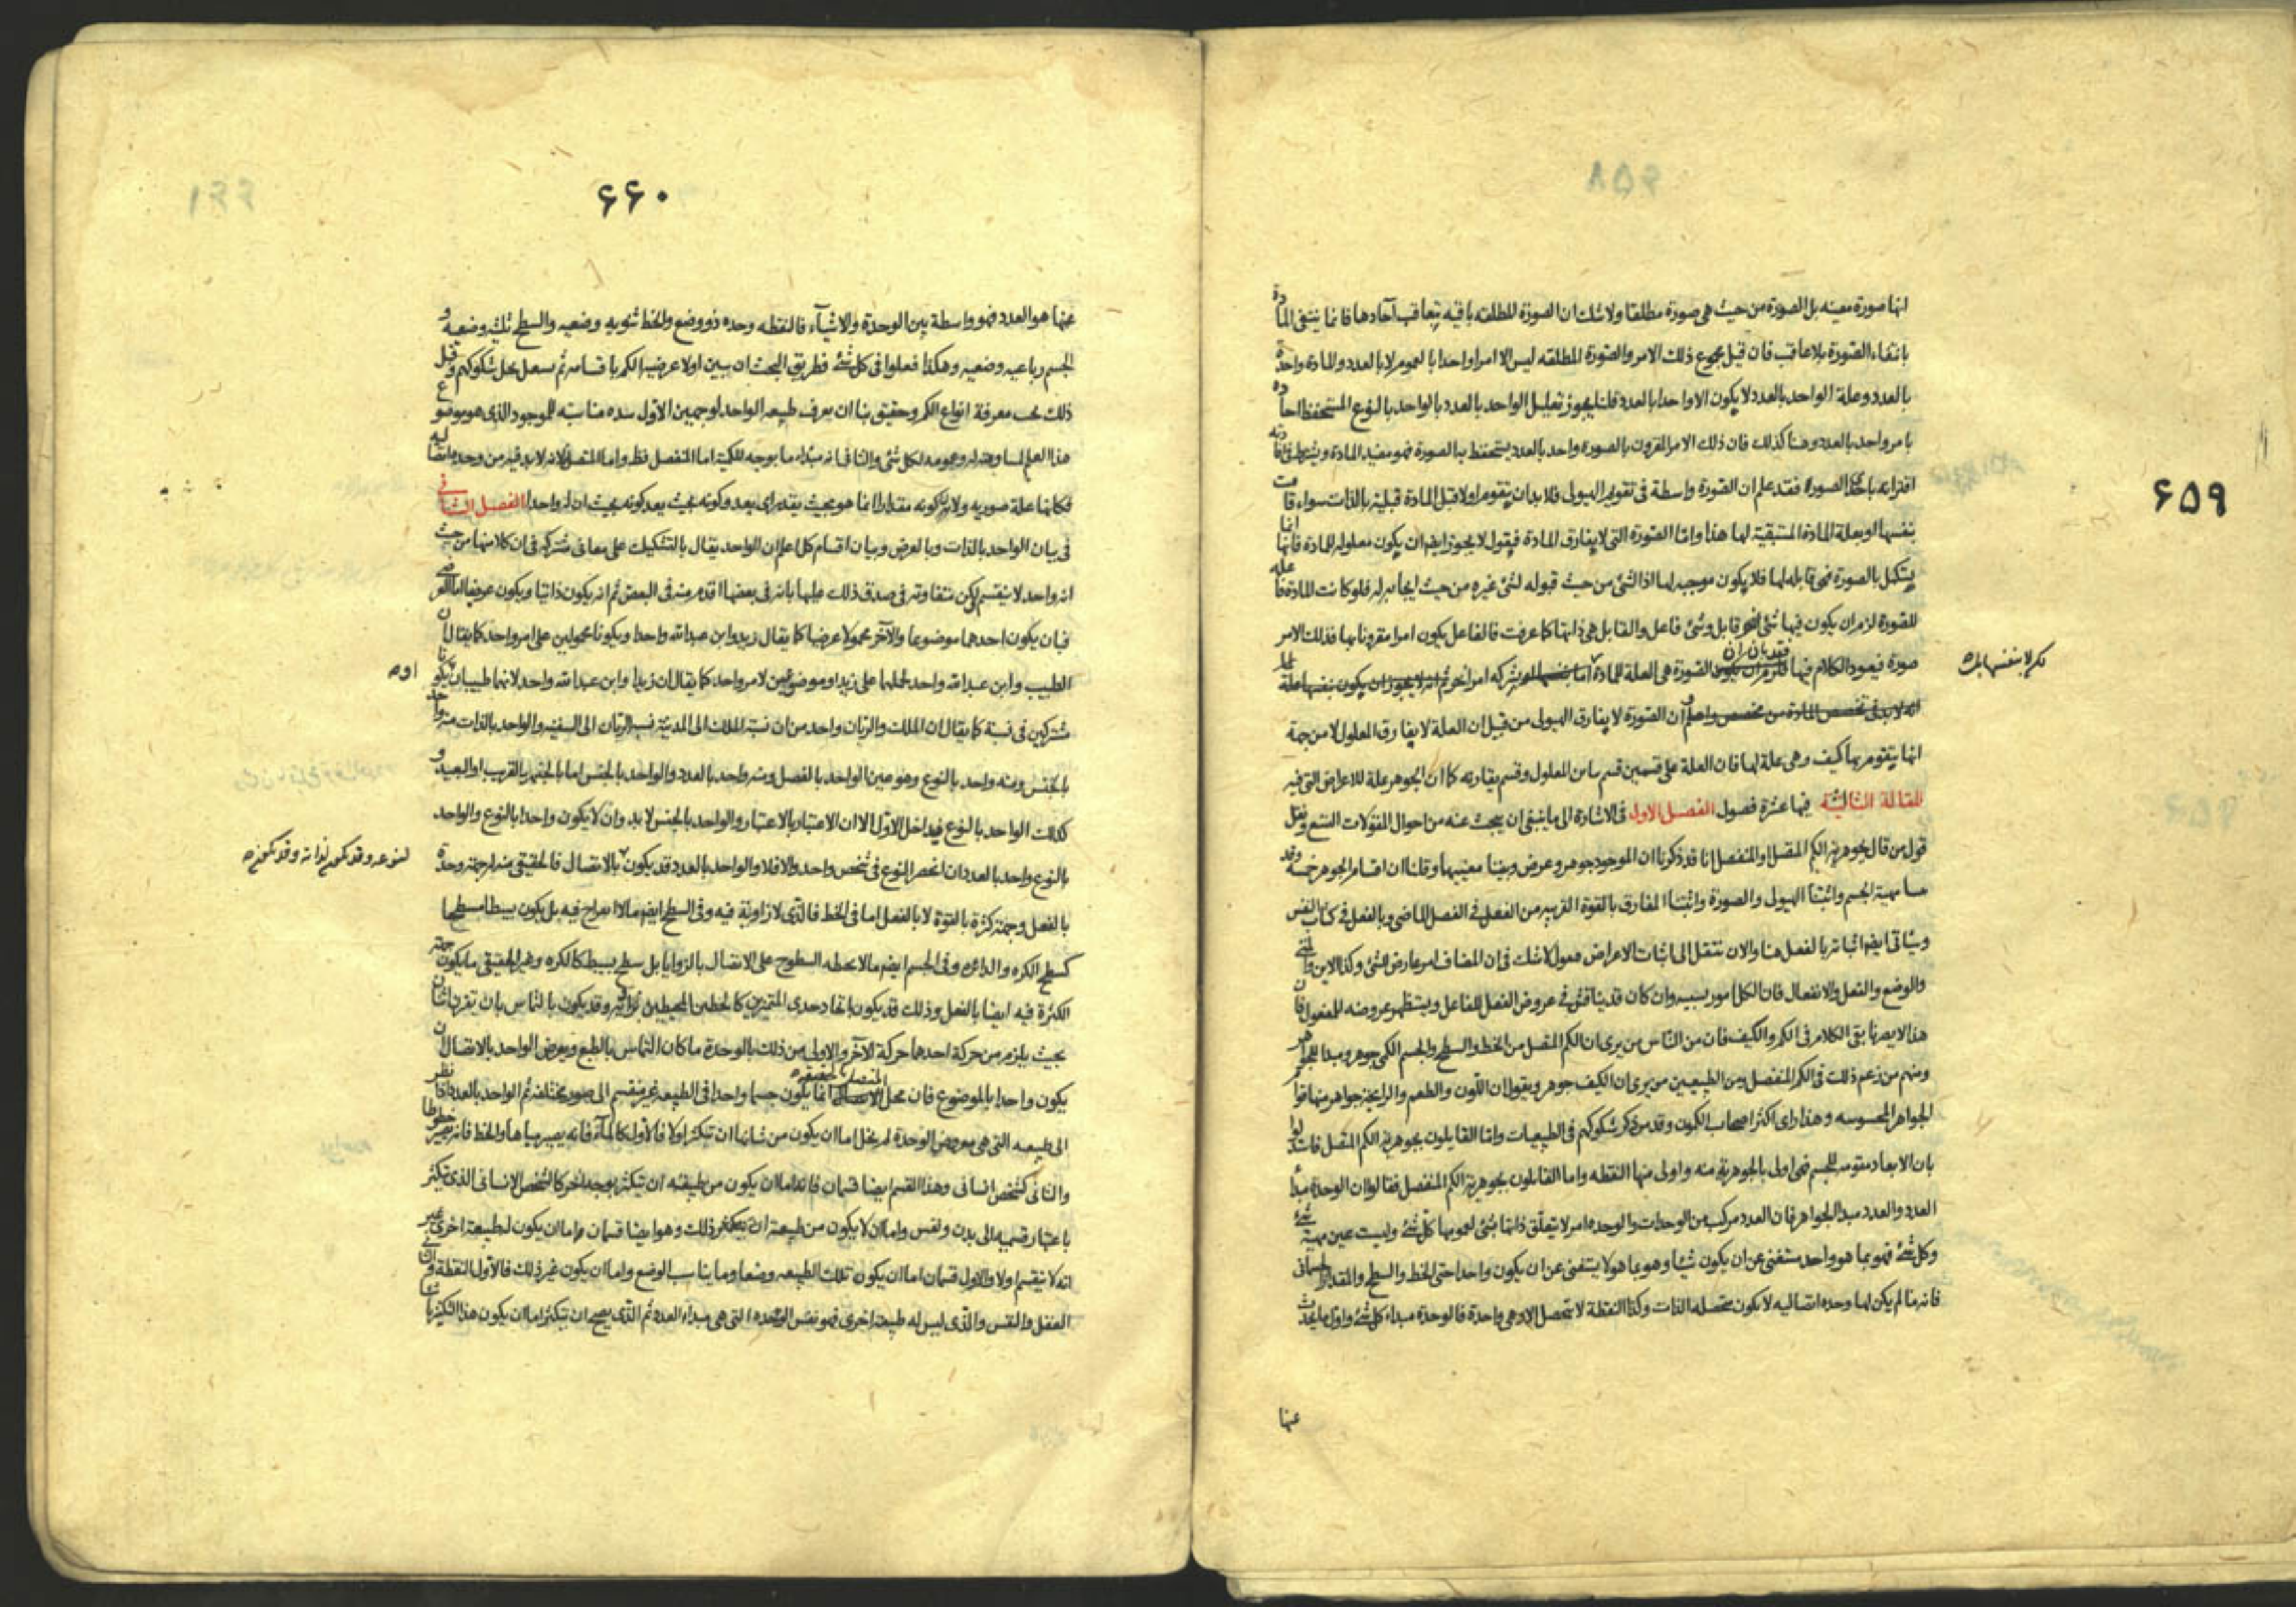 ۶۵۹
انها صورة معينه بل الصورة من حيث هي صورة مطلقا ولا شك ان الصورة المطلقه باقيه بتعاقب آحادها فانما ينتفى المادة
بانتفاء الصورة بلا عاقب فان قيل مجموع ذلك الامر والصورة المطلقه ليس الا امرا واحدا بالعموم لا بالعدد والمادة واحدة
بالعدد وعلة الواحد بالعدد لا يكون الا واحدا بالعدد قلنا يجوز تعليل الواحد بالعدد بالواحد بالنوع المستحفظ احاده
بامر واحد بالعدد وهنا كذلك فان ذلك الامر المقرون بالصوره واحد بالعدد يستحفظ بالصورة فهو مفيد المادة ويشترط فى افادته
اقترانه باحدى الصوره فقد علم ان الصورة واسطة فى تقويم الهيولى فلا بد ان يتقوم اولا قبل المادة قبلية بالذات سواء قامت
بنفسها او بعلة المادة المستبقية لها هذا واما الصورة التى لا يفارق المادة فيقول لا يجوز ايضا ان يكون معلوله للمادة فانها انما
يستكمل بالصورة فهى قابله لها فلا يكون موجبه لها اذ الشئ من حيث قبوله لشئ غيره من حيث ايجابه له فلو كانت المادة علة
للصورة لزم ان يكون فيها شئ قابل وشئ فاعل والقابل هى ذاتها كما عرفت فالفاعل يكون امرا مقرونا بها فذلك الامر
صورة فيعود الكلام فيها فقد بان ان الصورة هى العلة للمادة
لكن لا بنفسها بل
ان الصورة لا يفارق الهيولى من قبل ان العلة لا يفارق المعلول لا من جهة
انها يتقوم بها كيف وهى علة لها فان العلة على قسمين قسم مباين المعلول وقسم يقارنه كما ان الجوهر علة للاعراض التى فيه
المقالة الثالثة فيها عشرة فصول الفصل الاول فى الاشارة الى ما ينبغى ان يبحث عنه من احوال المقولات التسع ونقل
قول من قال بجوهرية الكم المتصل او المنفصل انا قد ذكرنا ان الموجود جوهر وعرض وبينا معنييها وقلنا ان اقسام الجوهر خمسة وقد
مهية الجسم واثبتنا الهيولى والصورة واثبتنا المفارق بالقوة القريبه من الفعل فى الفصل الماضى وبالفعل فى كتاب النفس
وسيأتى ايضا اثباته بالفعل هنا والان ننتقل الى اثبات الاعراض فنقول لا شك فى ان المضاف امر عارض للشئ وكذا الاين ومتى
والوضع والفعل والانفعال فان الكل امور نسبيه وان كان قد يناقش فى عروض الفعل للفاعل ويستظهر عروضه للمفعول فان
هذا لا يضرنا بقى الكلام فى الكم والكيف فان من الناس من يرى ان الكم المتصل من الخط والسطح والجسم الكمى جوهر ومبدا للجواهر
ومنهم من زعم ذلك فى الكم المنفصل ومن الطبيعيين من يرى ان الكيف جوهر ويقول ان اللون والطعم والرايحة جواهر منها قوام
الجواهر المحسوسه وهذا رأى اكثر اصحاب الكمون وقد مر ذكر شكوكهم فى الطبيعيات واما القايلون بجوهرية الكم المتصل فاستدلوا
بان الابعاد مقومه للجسم فهى اولى بالجوهرية منه واولى منها النقطه واما القايلون بجوهرية الكم المنفصل فقالوا ان الوحدة مبدأ
العدد والعدد مبدا الجواهر فان العدد مركب من الوحدات والوحده امر لا يتعلق ذاتها بشئ لعمومها كل شئ وليست عين مهية شئ
وكل شئ فهو بما هو واحد مستغنى عن ان يكون شيئا وهو بما هو لا يستغنى عن ان يكون واحدا حتى الخط والسطح والمقدار الجسمانى
فانه ما لم يكن لها وحده اتصاليه لا يكون متحصله الذات وكذا النقطة لا تتحصل الا وهى واحدة فالوحدة مبداء كل شئ واول ما يحدث
عنها
۶۶۰
عنها هو العدد فهو واسطة بين الوحدة والاشياء فالنقطه وحده ذو وضع والخط ثنويه وضعيه والسطح ثلثيه وضعيه و
الجسم رباعيه وضعيه وهكذا فعلوا فى كل شئ فطريق البحث ان يبين اولا عرضية الكم باقسامه ثم نشتغل بحل شكوكهم وقبل
ذلك يجب معرفة انواع الكم وحقيق بنا ان يعرف طبيعه الواحد لوجهين الاول شده مناسبته للموجود الذى هو موضوع
هذا العلم لمساوقته له وعمومه لكل شئ والثانى انه مبداء ما بوجه للكمية اما المنفصل فظ واما المتصل فلانه لا بد فيه من وحدة اتصاليه
فكانها علة صوريه ولان كونه مقدارا انما هو بحيث يقدر اى يعد وكونه بحيث يعد كونه بحيث ان له واحدا الفصل الثانى
فى بيان الواحد بالذات وبالعرض وبيان اقسام كل اعلم ان الواحد يقال بالتشكيك على معانى مشتركه فى ان كلا منها من حيث
انه واحد لا ينقسم لكن متفاوته فى صدق ذلك عليها بانه فى بعضها اقدم منه فى البعض ثم انه يكون ذاتيا ويكون عرضيا اما العرضى
فبان يكون احدهما موضوعا والآخر محمولا عرضيا كما يقال زيد وابن عبدالله واحد او يكونا محمولين على امر واحد كما يقال ان
الطبيب وابن عبدالله واحد لحملهما على زيد او موضوعين لامر واحد كما يقال ان زيدا وابن عبدالله واحد لانهما طبيبان او يكونا
مشتركين فى نسبة كما يقال ان الملك والربان واحد من ان نسبة الملك الى المدينة نسبة الربان الى السفينه والواحد بالذات منه واحد
بالجنس ومنه واحد بالنوع وهو عين الواحد بالفصل ومنه واحد بالعدد والواحد بالجنس اما بالجنس القريب او البعيد و
كذلك الواحد بالنوع فيداخل الاول الا ان الاعتبار بالاعتبار والواحد بالجنس لا بد وان لا يكون واحدا بالنوع والواحد
بالنوع واحد بالعدد ان انحصر النوع فى شخص واحد والا فلا والواحد بالعدد قد يكون بالاتصال فالحقيقى منه له جهة وحدة
بالفعل وجهة كثرة بالقوة لا بالفعل اما فى الخط فالذى لا زاوية فيه وفى السطح ايضا ما لا انعراج فيه بل يكون بسيطا مسطحا
كسطح الكره والدائره وفى الجسم ايضا ما لا يحيطه السطوح على الاتصال بالزوايا بل سطح بسيط كالكره وغير الحقيقى ما يكون جهة
الكثرة فيه ايضا بالفعل وذلك قد يكون باتحاد حدى المتميزين كالخطين المحيطين بزاوية وقد يكون بالتماس بان يقترن اثنان
بحيث يلزم من حركة احدهما حركة الآخر والاولى من ذلك بالوحدة ما كان التماس بالطبع ومعروض الواحد بالاتصال ان
يكون واحدا بالموضوع فان محل المتصل انما يكون جسما واحدا فى الطبيعه غير منقسم الى صور مختلفه ثم الواحد بالعدد اذا نظر
الى طبيعته التى هى معروض الوحدة لم يخل اما ان يكون من شانها ان تتكثر او لا فالاول كالماء فانه يصير مياها والخط فانه يصير خطوطا
والثانى كشخص انسانى وهذا القسم ايضا قسمان فانه اما ان يكون من طبيعته ان تتكثر بوجه آخر كالشخص الانسانى الذى يتكثر
باعتبار قسمته الى بدن ونفس واما ان لا يكون من طبيعته ذلك وهو ايضا قسمان فاما ان يكون له طبيعة اخرى غير
انه لا ينقسم اولا والاول قسمان اما ان يكون تلك الطبيعه وضعا وما يناسب الوضع واما ان يكون غير ذلك فالاول النقطة والثانى
العقل والنفس والذى ليس له طبيعة اخرى فهو نفس الوحده التى هى مبداء العدد ثم الذى يصح ان يتكثر اما ان يكون هذا التكثر